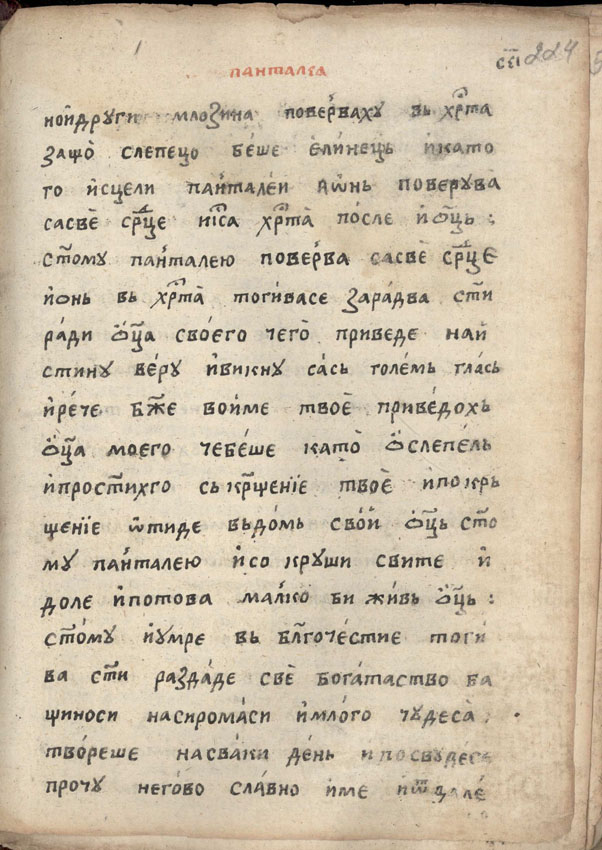 сеі 224
панталеа
нойдруги млозина поверваху вь хр҃та
защо̀ слепецо бе́ше е́линець и҆като
го и҆сцели пан҆тале́и а҆ѡ҆нь поверува
сасвѐ ср҃це ні҃са хр҃та̀ по́сле и҆ѻ҃ць :
ст҃ому пан҆талею поверва сасвѐ ср҃це
и҆ѻнь вь хр҃та̀ тогивасе зара́два ст҃и
ра́ди ѻ҃ца свое́го чего̀ приведе най
стину ве́ру и҆викну са́сь голе́мь гласъ
и҆ре́че бж҃е вои́ме твоѐ приве́дохь
ѻ҃ца моего чебе́ше като̀ ѻ҆слепе́ль
и҆прост҃ихго сь кр҃щеніе твоѐ и҆покрь
щеніе ѿтиде вьдо́мь сво́й ѻ҃ць ст҃о
му пан҆талею и҆со круши свите и҆
доле и҆потова мал҆ко би жи́вь ѻ҃ць :
ст҃ому и҆умре вь бл҃гоче́стие тоги
ва ст҃и разда́де свѐ бога́таство ба
щиноси насирома́си и҆мло́го чудеса̀ .
тво́реше насва́ки де́нь и посвудесе
прочу него́во сла́вно и҆ме